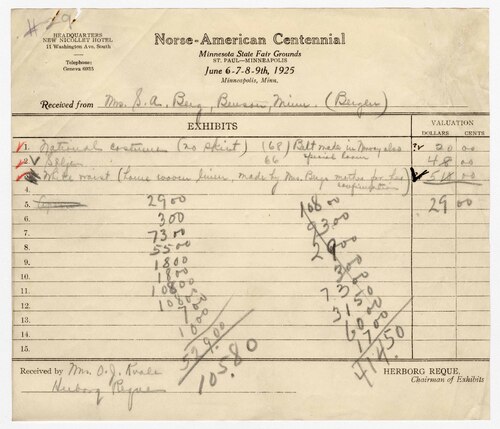 #29
HEADQUARTERS
NEW NICOLLET HOTEL
11 Washington Ave, South
Telephone:
Geneva 6935
Norse-American Centennial
Minnesota State Fair Grounds
ST. PAUL—MINNEAPOLIS
June 6-7-8-9th, 1925
Minneapolis, Minn.
Received from Mrs. S. A. Berg, Benson, Minn. (Bergen)
EXHIBITS
VALUATION
DOLLARS CENTS
1. National costume (no skirt) (68) Belt made in Norway also 20 00
2. 66 special loan 48 00
3. White waist (home woven linen, made by Mrs. Bergs mother for her confirmation)
4. 29 00
5. 29 00 108 00
6. 3 00 93 00
7. 73 00 29 00
8. 55 00
9. 18 00
10. 18 00
11. 108 00
12.
13.
14. 10 00 17 00
15. 529.00 414.50
1058.0
Received by Mrs. O. J. Kvale
Herborg Reque
HERBORG REQUE.
Chairman of Exhibits